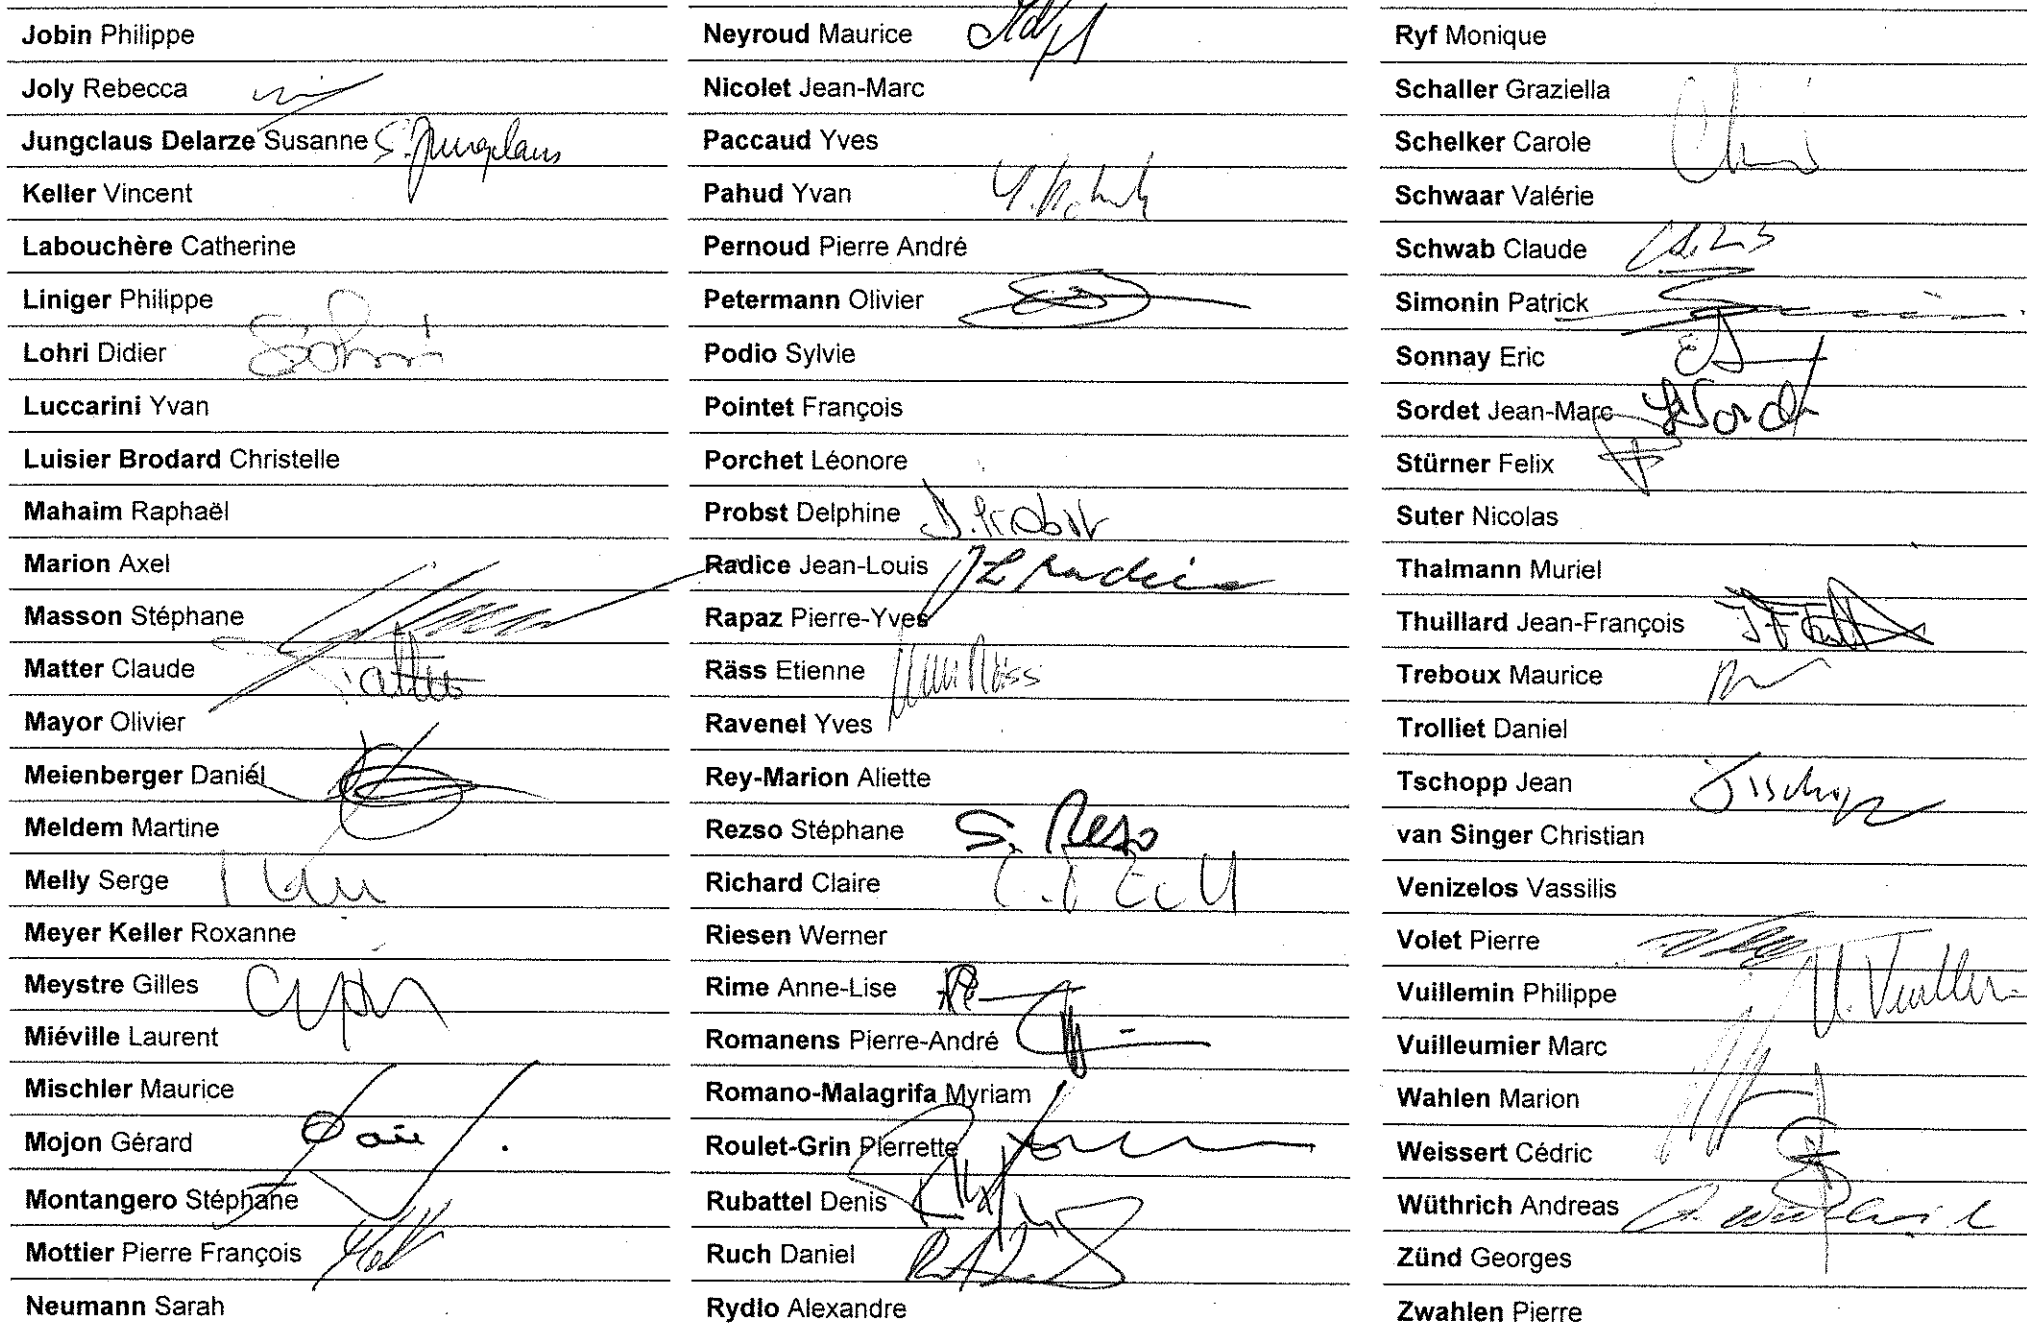 Jobin Philippe
Joly Rebecca
Jungclaus Delarze Susanne S. Jungclaus
Keller Vincent
Labouchère Catherine
Liniger Philippe
Lohri Didier
Luccarini Yvan
Luisier Brodard Christelle
Mahaim Raphaël
Marion Axel
Masson Stéphane
Matter Claude
Mayor Olivier
Meienberger Daniel
Meldem Martine
Melly Serge
Meyer Keller Roxanne
Meystre Gilles
Miéville Laurent
Mischler Maurice
Mojon Gérard
Montangero Stéphane
Mottier Pierre François
Neumann Sarah
Neyroud Maurice
Nicolet Jean-Marc
Paccaud Yves
Pahud Yvan
Pernoud Pierre André
Petermann Olivier
Podio Sylvie
Pointet François
Porchet Léonore
Probst Delphine D. Probst
Radice Jean-Louis JL Radice
Rapaz Pierre-Yves
Räss Etienne
Ravenel Yves
Rey-Marion Aliette
Rezso Stéphane S. Rezso
Richard Claire
Riesen Werner
Rime Anne-Lise
Romanens Pierre-André
Romano-Malagrifa Myriam
Roulet-Grin Pierrette
Rubattel Denis
Ruch Daniel
Rydlo Alexandre
Ryf Monique
Schaller Graziella
Schelker Carole
Schwaar Valérie
Schwab Claude
Simonin Patrick
Sonnay Eric
Sordet Jean-Marc
Stürner Felix
Suter Nicolas
Thalmann Muriel
Thuillard Jean-François
Treboux Maurice
Trolliet Daniel
Tschopp Jean
van Singer Christian
Venizelos Vassilis
Volet Pierre
Vuillemin Philippe
Vuilleumier Marc
Wahlen Marion
Weissert Cédric
Wüthrich Andreas
Zünd Georges
Zwahlen Pierre